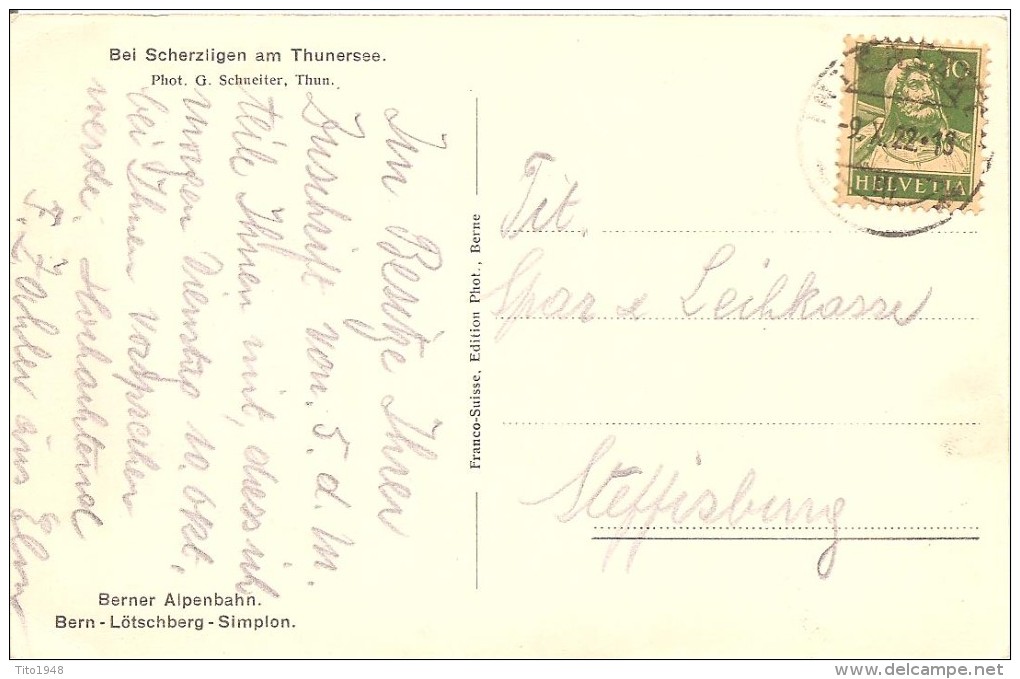 Bei Scherzligen am Thunersee.
Phot. G. Schneiter, Thun.
Im Besitze Ihrer
Zuschrift vom. 5. d. M.
teile Ihnen mit, dass ich
morgen Dienstag 10. Okt.
bei Ihnen vorsprechen
werde. Hochachtend
F. Zahler
Berner Alpenbahn.
Bern - Lötschberg - Simplon.
Franco-Suisse, Edition Phot., Berne
10
-9.X.22.-18
HELVETIA
Tit.
Spar & Leihkasse
Steffisburg
Tito1948
delcampe.net